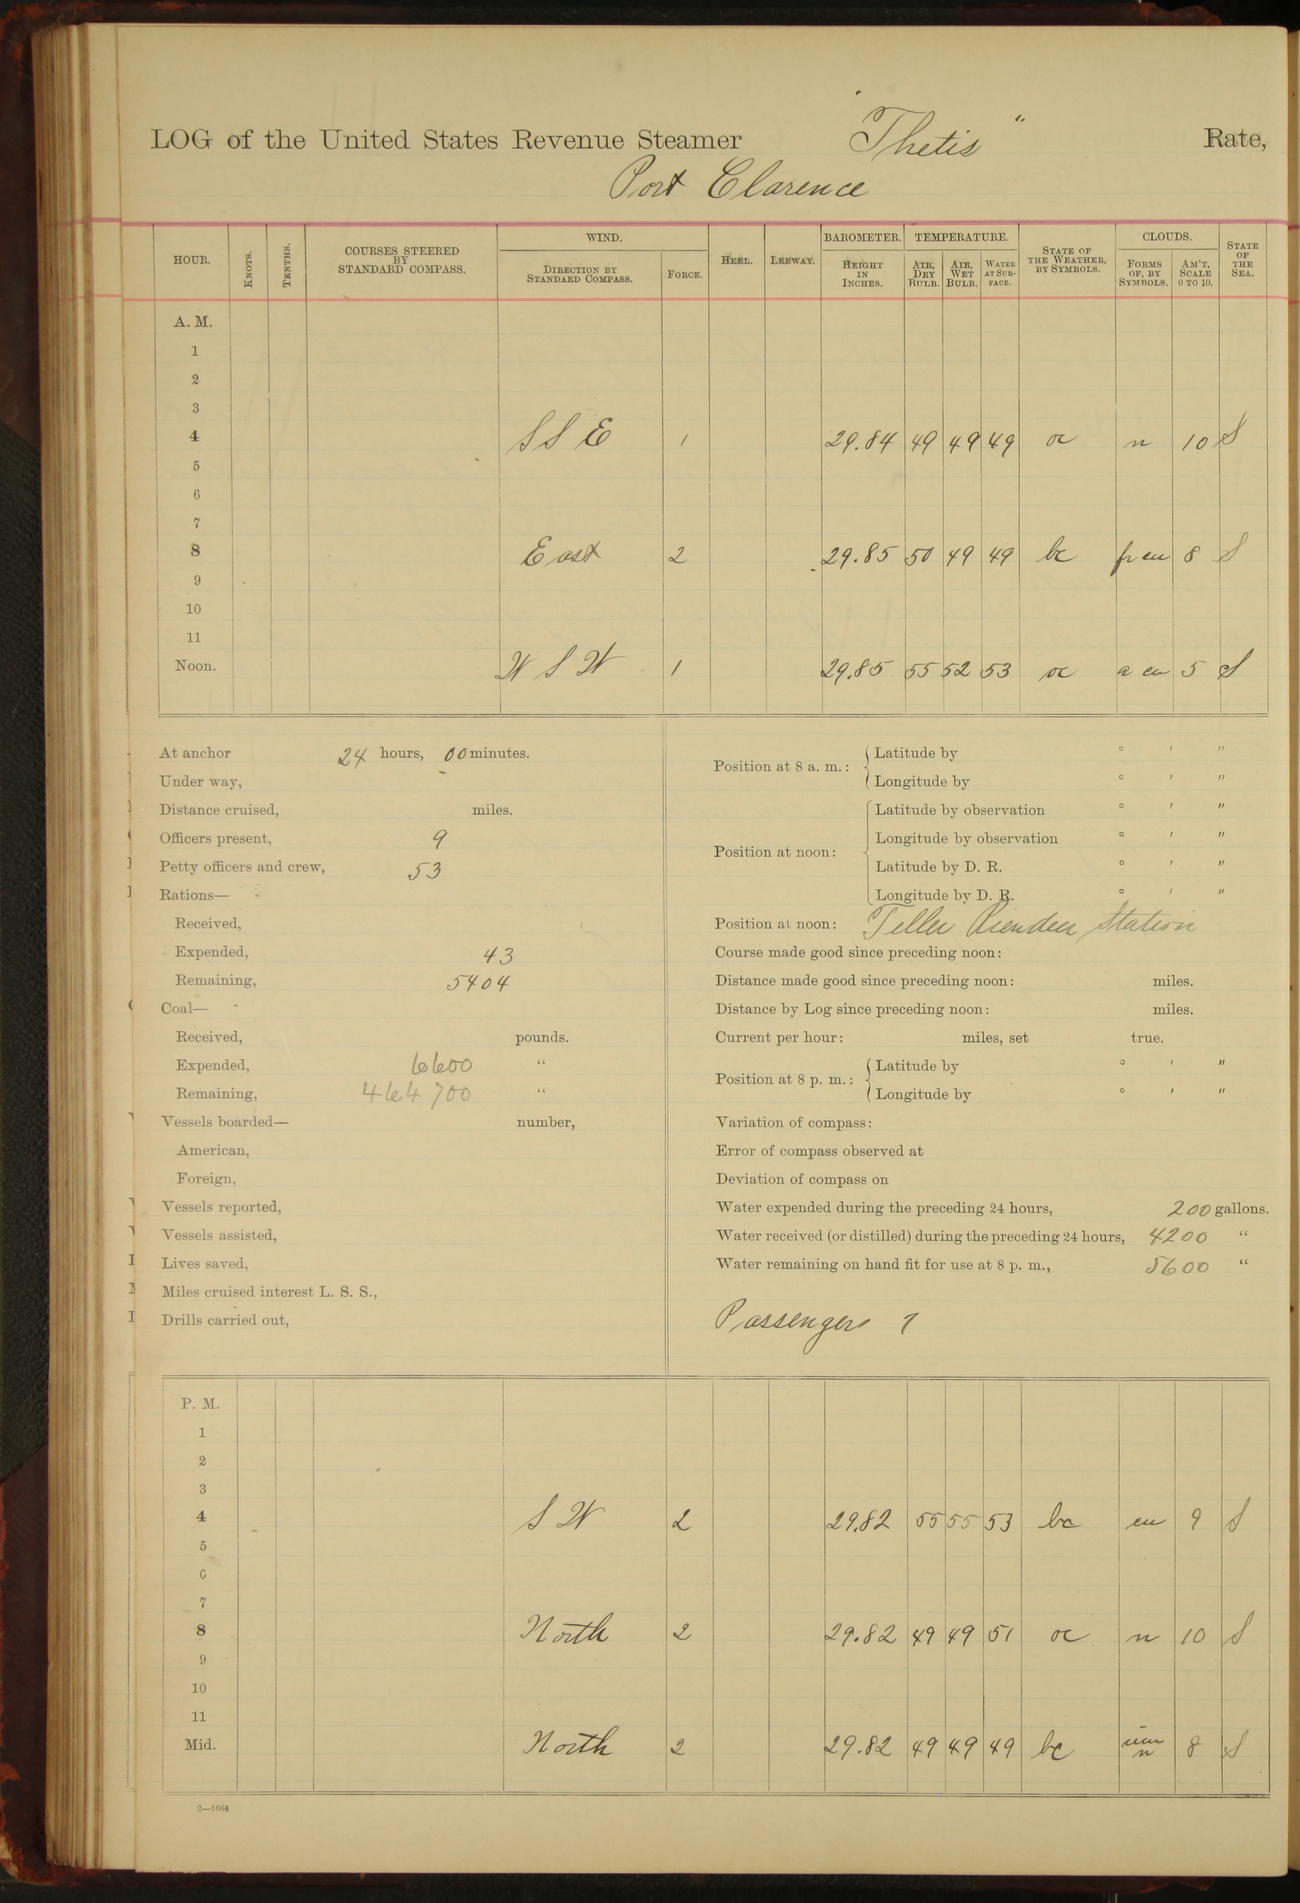 LOG of the United States Revenue Steamer "Thetis" Rate,
Port Clarence
HOUR. KNOTS. TENTHS. COURSES STEERED BY STANDARD COMPASS. WIND. DIRECTION BY STANDARD COMPASS. FORCE. HEEL. LEEWAY. BAROMETER. HEIGHT IN INCHES. TEMPERATURE. AIR, DRY BULB. AIR, WET BULB. WATER AT SURFACE. STATE OF THE WEATHER, BY SYMBOLS. CLOUDS. FORMS OF, BY SYMBOLS. AM'T, SCALE 0 TO 10. STATE OF THE SEA.
A. M.
1
2
3
4 S S E 1 29.84 49 49 49 oc n 10 S
5
6
7
8 East 2 29.85 50 49 49 bc fr cu 8 S
9
10
11
Noon. W S W 1 29.85 55 52 53 oc a cu 5 S
At anchor 24 hours, 00 minutes.
Under way,
Distance cruised, miles.
Officers present, 9
Petty officers and crew, 53
Rations—
Received,
Expended, 43
Remaining, 5404
Coal—
Received, pounds.
Expended, 6600 "
Remaining, 464700 "
Vessels boarded— number,
American,
Foreign,
Vessels reported,
Vessels assisted,
Lives saved,
Miles cruised interest L. S. S.,
Drills carried out,
Position at 8 a. m.: Latitude by ° ′ ″
Longitude by ° ′ ″
Position at noon: Latitude by observation ° ′ ″
Longitude by observation ° ′ ″
Latitude by D. R. ° ′ ″
Longitude by D. R. ° ′ ″
Position at noon: Teller Station
Course made good since preceding noon:
Distance made good since preceding noon: miles.
Distance by Log since preceding noon: miles.
Current per hour: miles, set true.
Position at 8 p. m.: Latitude by ° ′ ″
Longitude by ° ′ ″
Variation of compass:
Error of compass observed at
Deviation of compass on
Water expended during the preceding 24 hours, 200 gallons.
Water received (or distilled) during the preceding 24 hours, 4200 "
Water remaining on hand fit for use at 8 p. m., 5600 "
Passengers
P. M.
1
2
3
4 S W 2 29.82 55 55 53 bc cu 9 S
5
6
7
8 North 2 29.82 49 49 51 oc n 10 S
9
10
11
Mid. North 2 29.82 49 49 49 bc n 8 S
2—1664